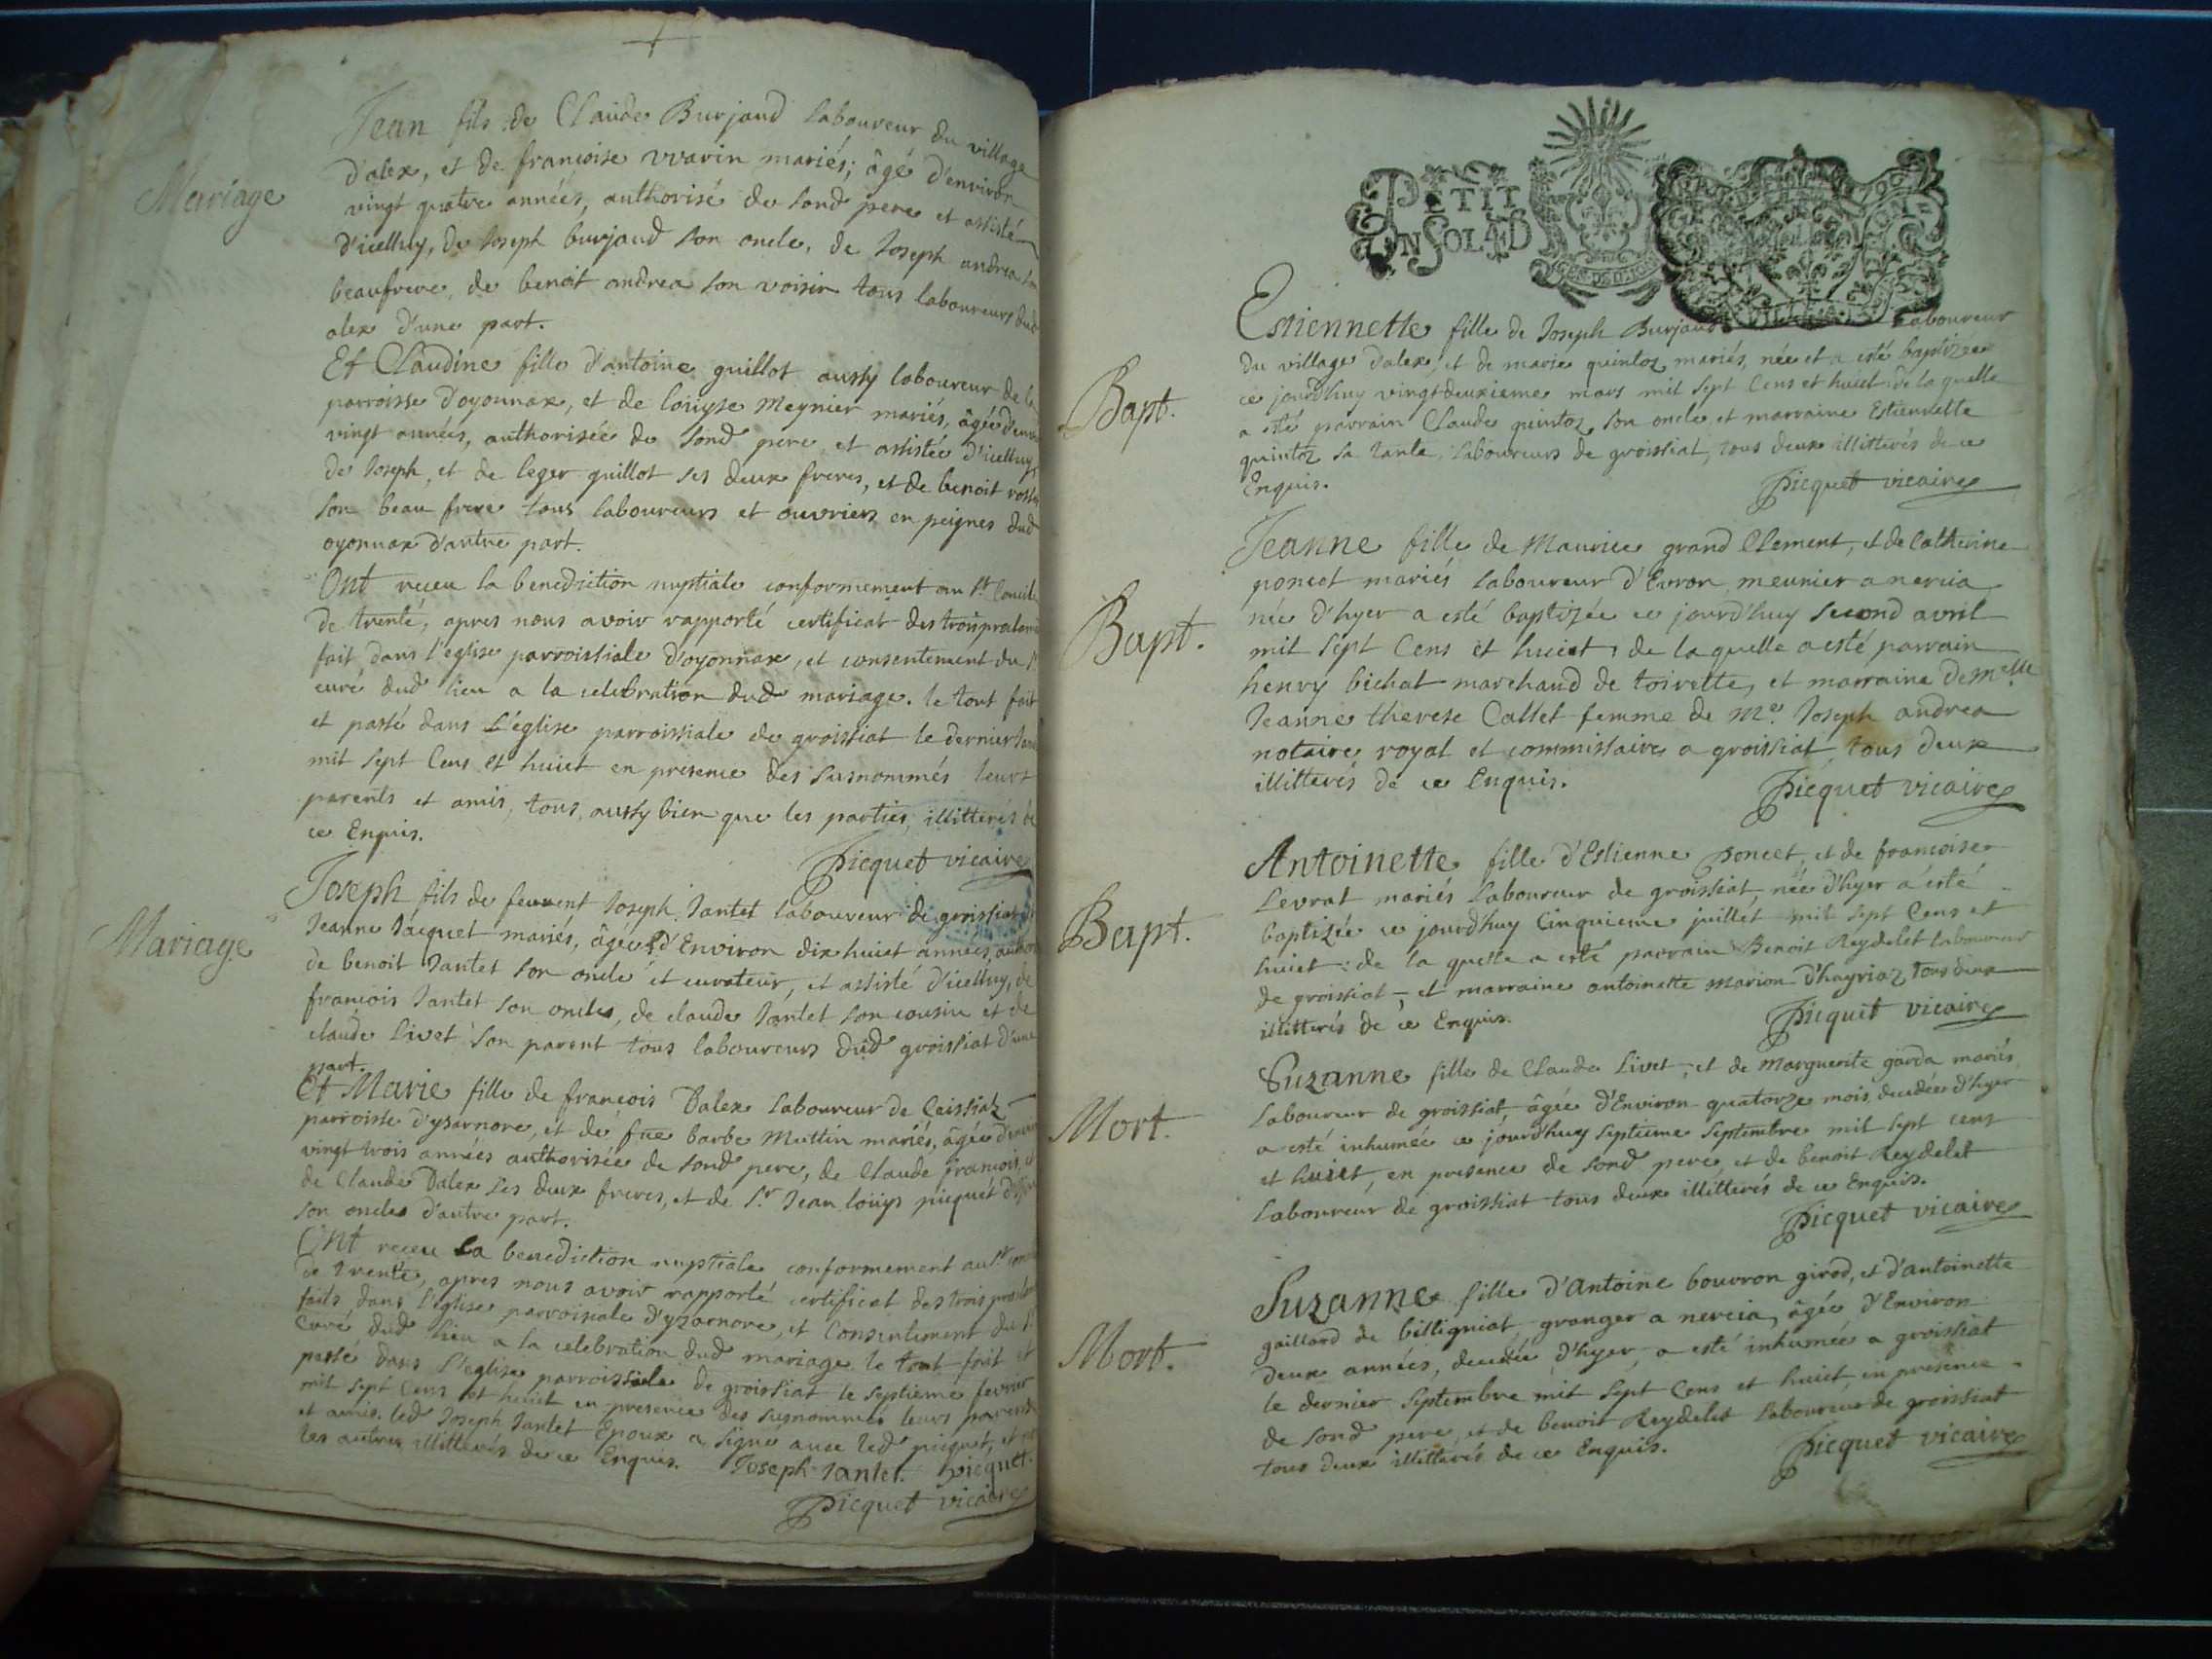 Mariage
Jean fils de Claude Burjaud laboureur du village
d'alex, et de françoise vvarin mariés; âgé d'environ
vingt quatre années, authorisé de sond pere et assisté
d'icelluy, de Joseph burjaud son oncle, de Joseph andrea son
beaufrere, de benoit andrea son voisin tous laboureurs dud
alex d'une part.
Et Claudine fille d'antoine guillot aussy laboureur de la
parroisse d'oyonnax, et de loüyse Meynier mariés, âgée d'env
vingt années, authorisée de sond pere et assistée d'icelluy,
de Joseph, et de leger guillot ses deux freres, et de benoit
son beau frere tous laboureurs et ouvriers en peignes dud
oyonnax d'autre part.
Ont receu la benediction nuptiale conformement au St. Concile
de trente, apres nous avoir rapporté certificat des trois proclam
fait dans l'eglise parroissiale d'oyonnax, et consentement du Sr
curé dud lieu a la celebration dud mariage. le tout fait
et passé dans L'église parroissiale de groissiat le dernier
mil sept Cens et huict en presence des susnommés leurs
parents et amis, tous, aussy bien que les parties, illitterés de
ce Enquis.
Picquet vicaire
Mariage
Joseph fils de feu Joseph Jantet laboureur de groissiat
Jeanne Jacquet mariés, âgée d'Environ dix huict années, author
de benoit Jantet son oncle et curateur, et assisté d'icelluy, de
françois Jantet son oncles, de claude Jantet son cousin et de
claude Livet son parent tous laboureurs dud groissiat d'une
part.
Et Marie fille de françois Dalex laboureur de Ceissiat
parroisse d'ysarnore, et de füe barbe Muttin mariés, âgée d'env
vingt trois années authorisée de sond pere, de Claude françois, et
de Claude Dalex ses deux freres, et de Sr Jean loüys picquet
son oncles d'autre part.
Ont receu La benediction nuptiale conformement au St
de trente, apres nous avoir rapporté certificat des trois proclam
faits dans l'eglise parroissiale d'ysarnore, et Consentement du Sr
Curé dud lieu a la celebration dud mariage le tout fait et
passé dans l'eglise parroissiale de groissiat le septieme fevrier
mil sept Cens et huict en presence des susnommés leurs parents
et amis. led Joseph Jantet Epoux a signé avec led picquet, et
les autres illitterés de ce Enquis. Joseph Jantet. picquet.
Picquet vicaire
PETIT
UN SOL 4 D
GEN DE DIJON
Bapt.
Estiennette fille de Joseph Burjaud Laboureur
du village dalex, et de marie quintoz mariés, née et a esté baptizée
ce jourd'huy vingtdeuxieme mars mil sept Cens et huict de laquelle
a esté parrain Claude quintoz son oncle et marraine Estiennette
quintoz sa tante, laboureurs de groissiat, tous deux illitterés de ce
Enquis.
Picquet vicaire
Bapt.
Jeanne fille de Maurice grand Clement, et de Catherine
poncet mariés laboureur d'Evron, meunier a nercia
née d'hyer a esté baptizée ce jourd'huy second avril
mil sept Cens et huict, de laquelle a esté parrain
henry bichat marchand de toirette, et marraine Demelle
Jeanne therese Callet femme de Me. Joseph andrea
notaire royal et commissaire a groissiat, tous deux
illitterés de ce Enquis.
Picquet vicaire
Bapt.
Antoinette fille d'Estienne Poncet, et de françoise
Levrat mariés laboureur de groissiat, née d'hyer a esté
baptizée ce jourd'huy Cinquieme juillet mil sept Cens et
huict: de la quelle a esté parrain Benoit Reydelet laboureur
de groissiat, et marraine antoinette marion d'hayriaz tous deux
illitterés de ce Enquis.
Picquet vicaire
Mort.
Suzanne fille de Claude Livet, et de Marguerite garda mariés
Laboureur de groissiat, âgée d'Environ quatorze mois, decedée d'hyer
a esté inhumée ce jourd'huy septieme septembre mil sept cens
et huict, en presence de sond pere, et de benoit Reydelet
Laboureur de groissiat tous deux illitterés de ce Enquis.
Picquet vicaire
Mort.
Suzanne fille d'Antoine bouvron girod, et d'antoinette
gaillard de billigniat granger a nercia, âgée d'Environ
deux années, decedée d'hyer, a esté inhumée a groissiat
le dernier septembre mil sept Cens et huict, en presence
de sond pere, et de benoit Reydelet laboureur de groissiat
tous deux illitterés de ce Enquis.
Picquet vicaire